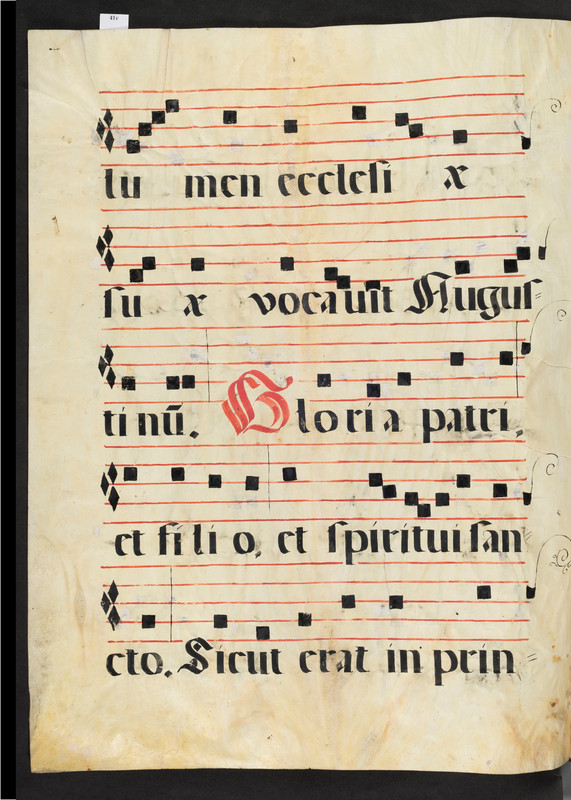 41v
lu men ecclesi æ
su æ vocauit Augus=
ti nū. Gloria patri,
et fili o, et spiritui san
cto. Sicut erat in prin=